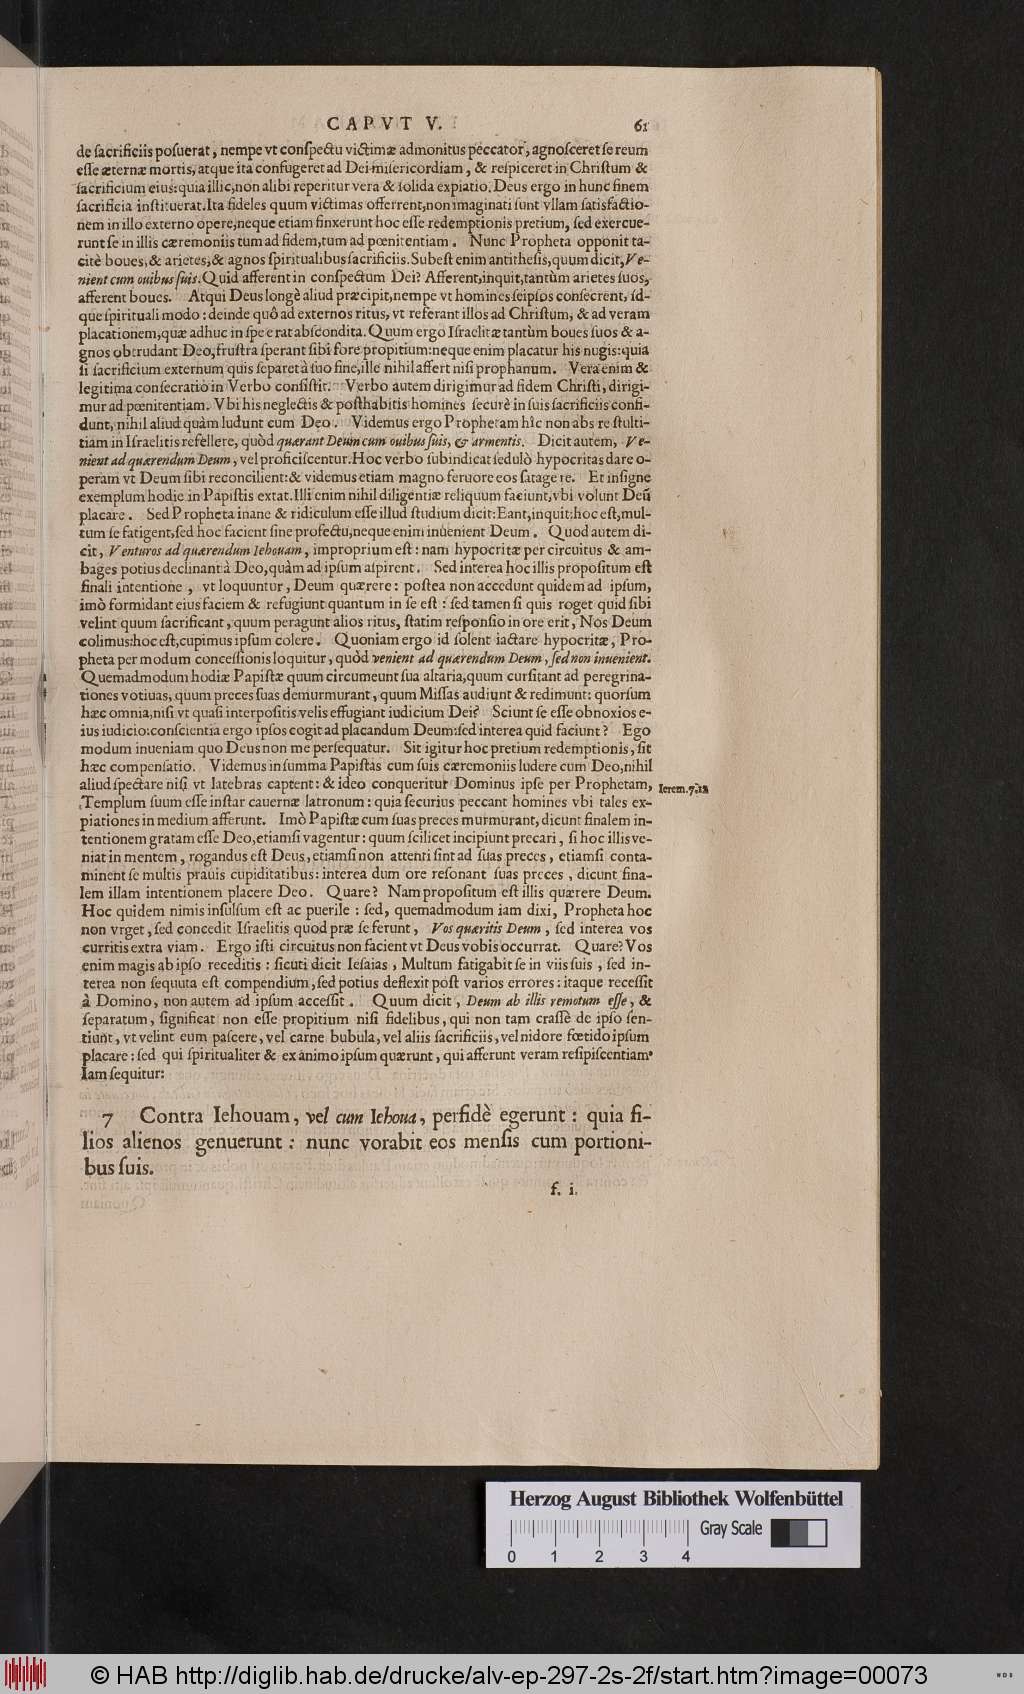 CAPVT V. 61
de ſacrificiis poſuerat, nempe vt conſpectu victimæ admonitus peccator, agnoſceret ſe reum
eſſe æternæ mortis, atque ita confugeret ad Dei miſericordiam, & reſpiceret in Chriſtum &
ſacrificium eius: quia illic, non alibi reperitur vera & ſolida expiatio. Deus ergo in hunc finem
ſacrificia inſtituerat. Ita fideles quum victimas offerrent, non imaginati ſunt vllam ſatisfactio-
nem in illo externo opere, neque etiam finxerunt hoc eſſe redemptionis pretium, ſed exercue-
runt ſe in illis cæremoniis tum ad fidem, tum ad pœnitentiam. Nunc Propheta opponit ta-
citè boues, & arietes, & agnos ſpiritualibus ſacrificiis. Subeſt enim antitheſis, quum dicit, Ve-
nient cum ouibus ſuis. Quid afferent in conſpectum Dei? Afferent, inquit, tantùm arietes ſuos,
afferent boues. Atqui Deus longè aliud præcipit, nempe vt homines ſeipſos conſecrent, id-
que ſpirituali modo: deinde quô ad externos ritus, vt referant illos ad Chriſtum, & ad veram
placationem, quæ adhuc in ſpe erat abſcondita. Quum ergo Iſraelitæ tantùm boues ſuos & a-
gnos obtrudant Deo, fruſtra ſperant ſibi fore propitium: neque enim placatur his nugis: quia
ſi ſacrificium externum quis ſeparet à ſuo fine, ille nihil affert niſi prophanum. Vera enim &
legitima conſecratio in Verbo conſiſtit. Verbo autem dirigimur ad fidem Chriſti, dirigi-
mur ad pœnitentiam. Vbi his neglectis & poſthabitis homines ſecurè in ſuis ſacrificiis confi-
dunt, nihil aliud quàm ludunt cum Deo. Videmus ergo Prophetam hîc non abs re ſtulti-
tiam in Iſraelitis refellere, quòd quærant Deum cum ouibus ſuis, & armentis. Dicit autem, Ve-
nient ad quærendum Deum, vel proficiſcentur. Hoc verbo ſubindicat ſedulò hypocritas dare o-
peram vt Deum ſibi reconcilient: & videmus etiam magno feruore eos ſatagere. Et inſigne
exemplum hodie in Papiſtis extat. Illi enim nihil diligentiæ reliquum faciunt, vbi volunt Deũ
placare. Sed Propheta inane & ridiculum eſſe illud ſtudium dicit: Eant, inquit: hoc eſt, mul-
tum ſe fatigent, ſed hoc facient ſine profectu, neque enim inuenient Deum. Quod autem di-
cit, Venturos ad quærendum Iehouam, improprium eſt: nam hypocritæ per circuitus & am-
bages potius declinant à Deo, quàm ad ipſum aſpirent. Sed interea hoc illis propoſitum eſt
finali intentione, vt loquuntur, Deum quærere: poſtea non accedunt quidem ad ipſum,
imò formidant eius faciem & refugiunt quantum in ſe eſt: ſed tamen ſi quis roget quid ſibi
velint quum ſacrificant, quum peragunt alios ritus, ſtatim reſponſio in ore erit, Nos Deum
colimus: hoc eſt, cupimus ipſum colere. Quoniam ergo id ſolent iactare hypocritæ, Pro-
pheta per modum conceſſionis loquitur, quòd venient ad quærendum Deum, ſed non inuenient.
Quemadmodum hodiæ Papiſtæ quum circumeunt ſua altaria, quum curſitant ad peregrina-
tiones votiuas, quum preces ſuas demurmurant, quum Miſſas audiunt & redimunt: quorſum
hæc omnia, niſi vt quaſi interpoſitis velis effugiant iudicium Dei? Sciunt ſe eſſe obnoxios e-
ius iudicio: conſcientia ergo ipſos cogit ad placandum Deum: ſed interea quid faciunt? Ego
modum inueniam quo Deus non me perſequatur. Sit igitur hoc pretium redemptionis, ſit
hæc compenſatio. Videmus in ſumma Papiſtas cum ſuis cæremoniis ludere cum Deo, nihil
aliud ſpectare niſi vt latebras captent: & ideo conqueritur Dominus ipſe per Prophetam,
Ierem. 7. 11
Templum ſuum eſſe inſtar cauernæ latronum: quia ſecurius peccant homines vbi tales ex-
piationes in medium afferunt. Imò Papiſtæ cum ſuas preces murmurant, dicunt finalem in-
tentionem gratam eſſe Deo, etiamſi vagentur: quum ſcilicet incipiunt precari, ſi hoc illis ve-
niat in mentem, rogandus eſt Deus, etiamſi non attenti ſint ad ſuas preces, etiamſi conta-
minent ſe multis prauis cupiditatibus: interea dum ore reſonant ſuas preces, dicunt fina-
lem illam intentionem placere Deo. Quare? Nam propoſitum eſt illis quærere Deum.
Hoc quidem nimis inſulſum eſt ac puerile: ſed, quemadmodum iam dixi, Propheta hoc
non vrget, ſed concedit Iſraelitis quod præ ſe ferunt, Vos quæritis Deum, ſed interea vos
curritis extra viam. Ergo iſti circuitus non facient vt Deus vobis occurrat. Quare? Vos
enim magis ab ipſo receditis: ſicuti dicit Ieſaias, Multum fatigabit ſe in viis ſuis, ſed in-
terea non ſequuta eſt compendium, ſed potius deflexit poſt varios errores: itaque receſſit
à Domino, non autem ad ipſum acceſſit. Quum dicit, Deum ab illis remotum eſſe, &
ſeparatum, ſignificat non eſſe propitium niſi fidelibus, qui non tam craſſè de ipſo ſen-
tiunt, vt velint eum paſcere, vel carne bubula, vel aliis ſacrificiis, vel nidore fœtido ipſum
placare: ſed qui ſpiritualiter & ex animo ipſum quærunt, qui afferunt veram reſipiſcentiam.
Iam ſequitur:
7 Contra Iehouam, vel cum Iehoua, perfidè egerunt: quia fi-
lios alienos genuerunt: nunc vorabit eos menſis cum portioni-
bus ſuis.
f. i.
Herzog August Bibliothek Wolfenbüttel
Gray Scale
0 1 2 3 4
© HAB http://diglib.hab.de/drucke/alv-ep-297-2s-2f/start.htm?image=00073